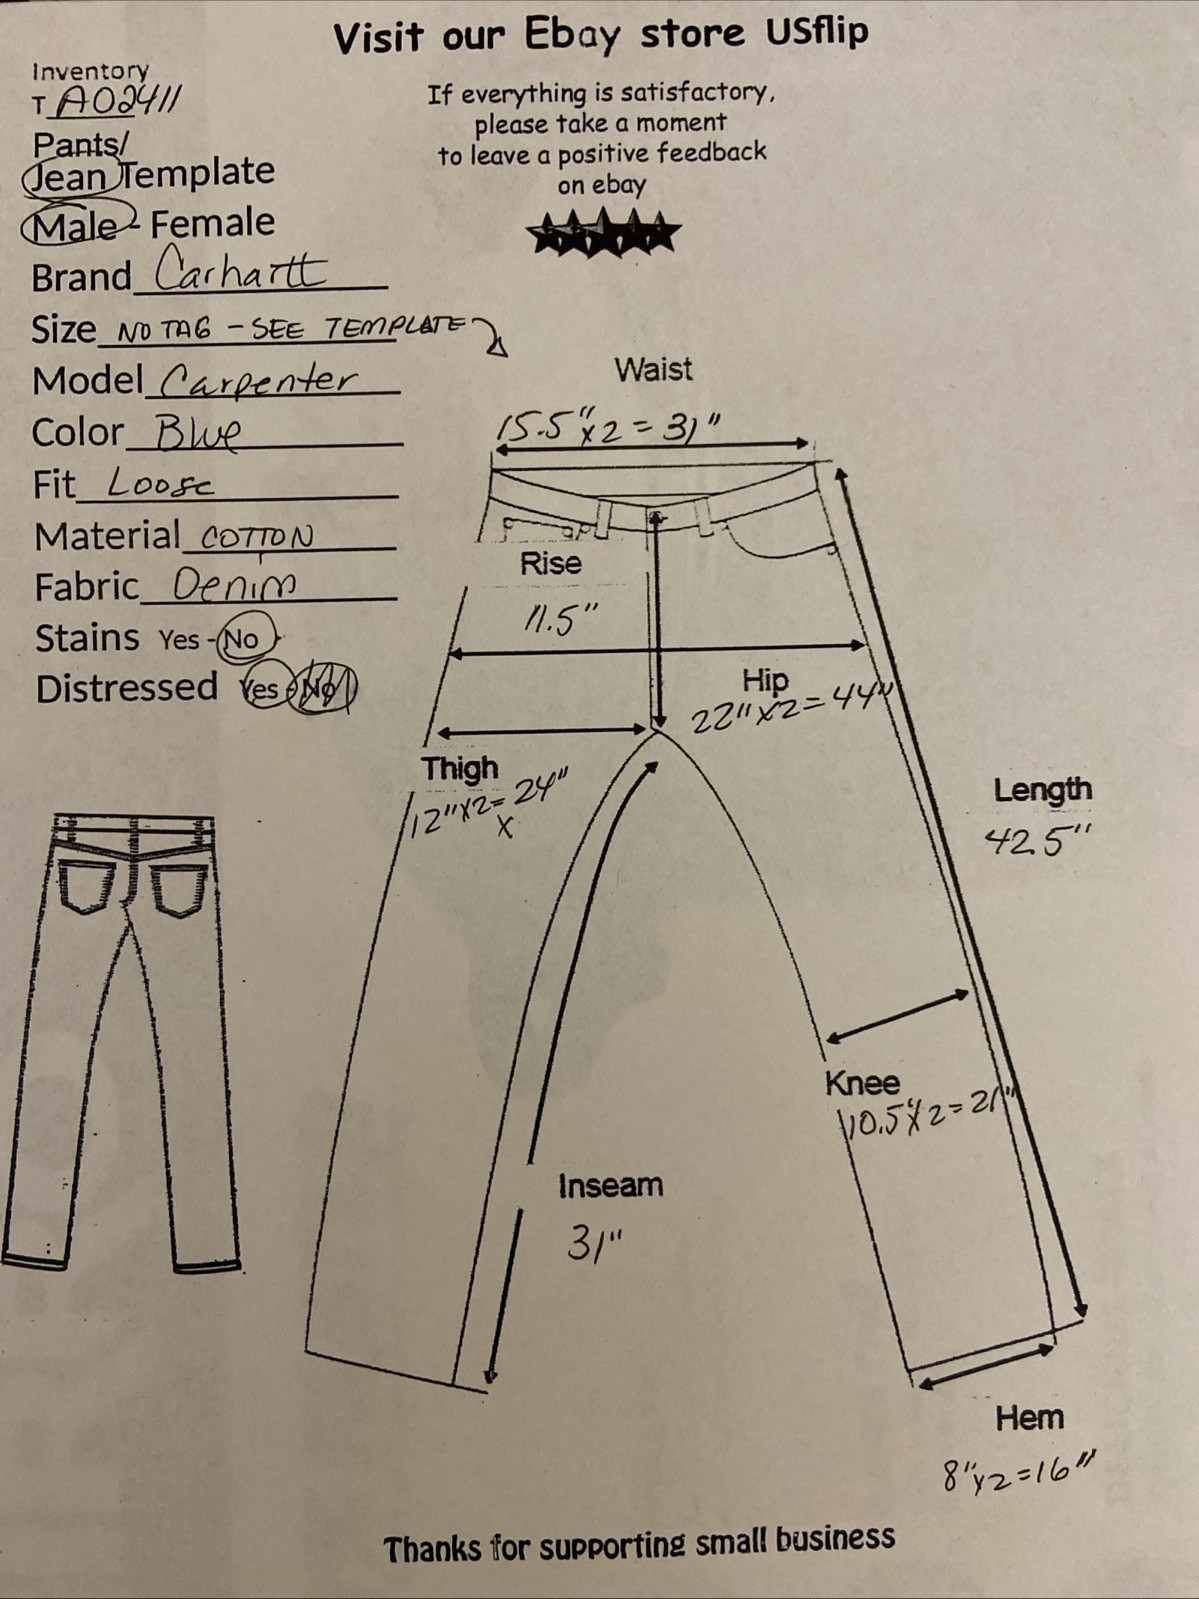 Visit our Ebay store USflip
Inventory
T A02411
Pants/
Jean Template
Male - Female
Brand Carhartt
Size NO TAG - SEE TEMPLATE
Model Carpenter
Color Blue
Fit Loose
Material COTTON
Fabric Denim
Stains Yes - No
Distressed Yes - No
If everything is satisfactory,
please take a moment
to leave a positive feedback
on ebay
Waist
15.5" x2 = 31"
Rise
11.5"
Hip
22" x2 = 44"
Thigh
12" x2 = 24"
x
Length
42.5"
Knee
10.5" x2 = 21"
Inseam
31"
Hem
8" x2 = 16"
Thanks for supporting small business